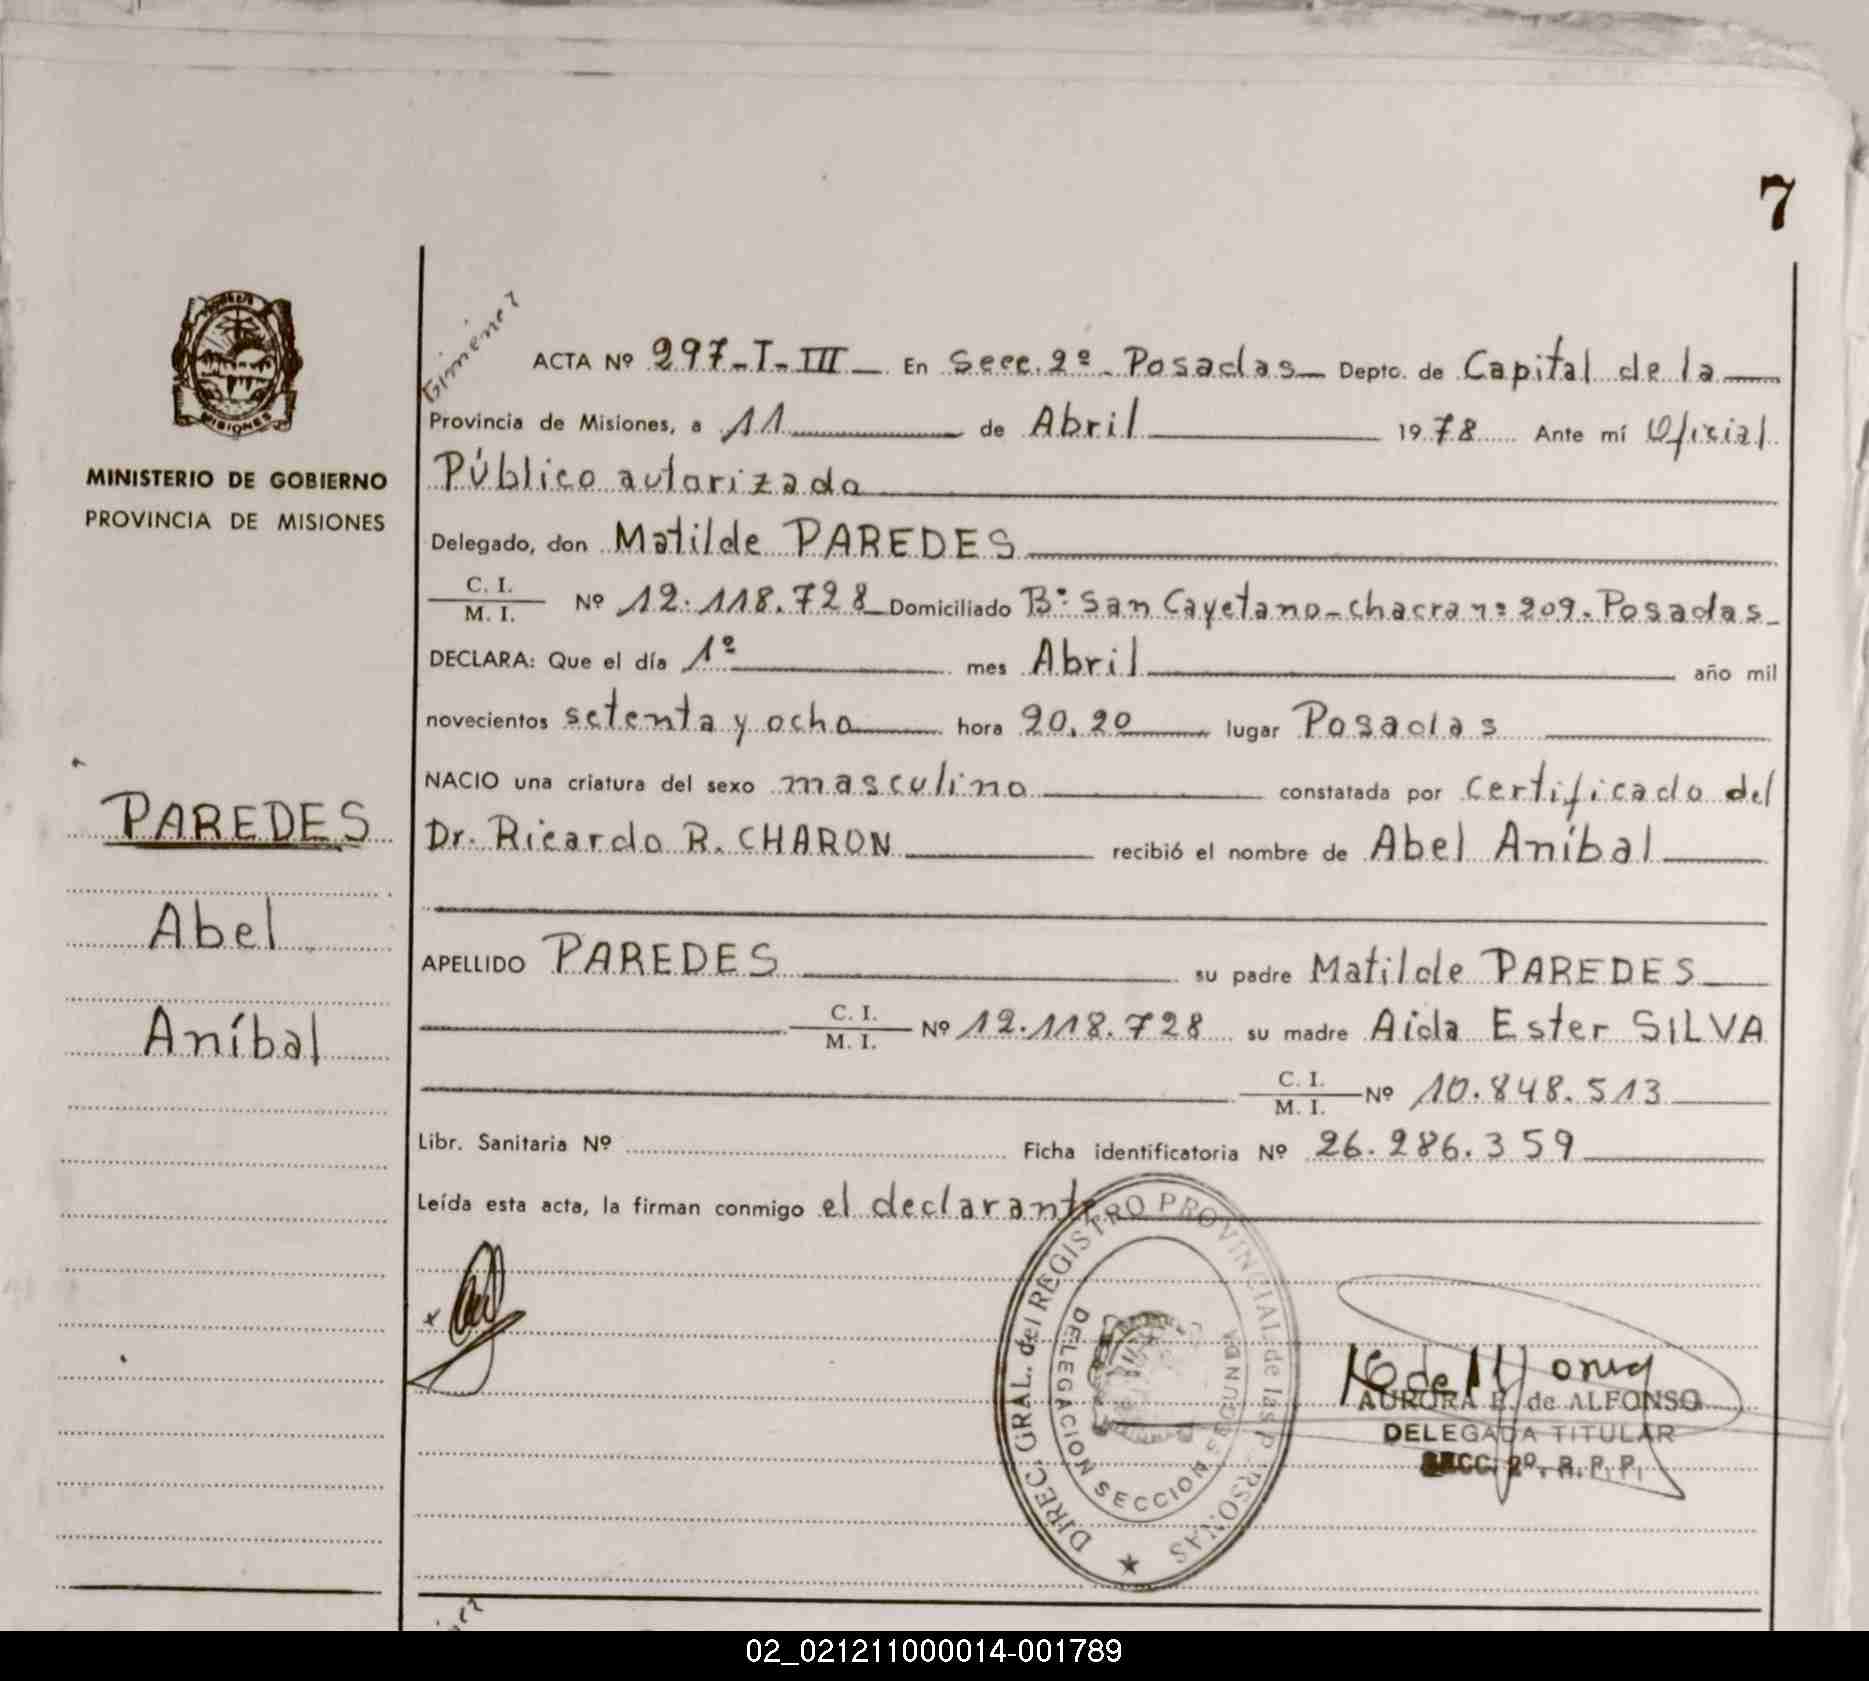 7
Gimenez
ACTA Nº 297-I-III En Secc. 2º Posadas Depto. de Capital de la
Provincia de Misiones, a 11 de Abril 1978 Ante mí Oficial
MINISTERIO DE GOBIERNO
PROVINCIA DE MISIONES
Público autorizado
Delegado, don Matilde PAREDES
C. I.
M. I. Nº 12.118.728 Domiciliado Bº San Cayetano-chacra nº 209. Posadas
DECLARA: Que el día 1º mes Abril año mil
novecientos setenta y ocho hora 20,20 lugar Posadas
NACIO una criatura del sexo masculino constatada por certificado del
Dr. Ricardo R. CHARON recibió el nombre de Abel Aníbal
PAREDES
Abel
Aníbal
APELLIDO PAREDES su padre Matilde PAREDES
C. I.
M. I. Nº 12.118.728 su madre Aida Ester SILVA
C. I.
M. I. Nº 10.848.513
Libr. Sanitaria Nº Ficha identificatoria Nº 26.286.359
Leída esta acta, la firman conmigo el declarante
DIREC. GRAL. del REGISTRO PROVINCIAL de las PERSONAS
DELEGACION SECCION SEGUNDA
AURORA E. de ALFONSO
DELEGADA TITULAR
SECC. 2º. R. P. P.
MISIONES
02_021211000014-001789